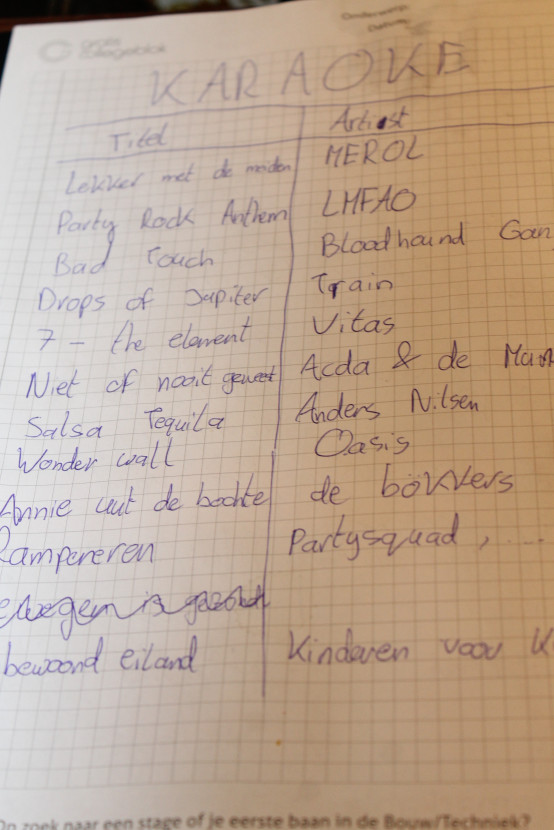 KARAOKE
Titel Artiest
Lekker met de meiden MEROL
Party Rock Anthem LMFAO
Bad Touch Bloodhound Gan
Drops of Jupiter Train
7 - the element Vitas
Niet of nooit geweest Acda & de Mun
Salsa Tequila Anders Nilsen
Wonder wall Oasis
Annie uut de bochte de bökkers
Rampeneren Partysquad, ...
bewoond eiland Kinderen voor K
Op zoek naar een stage of je eerste baan in de Bouw/Techniek?